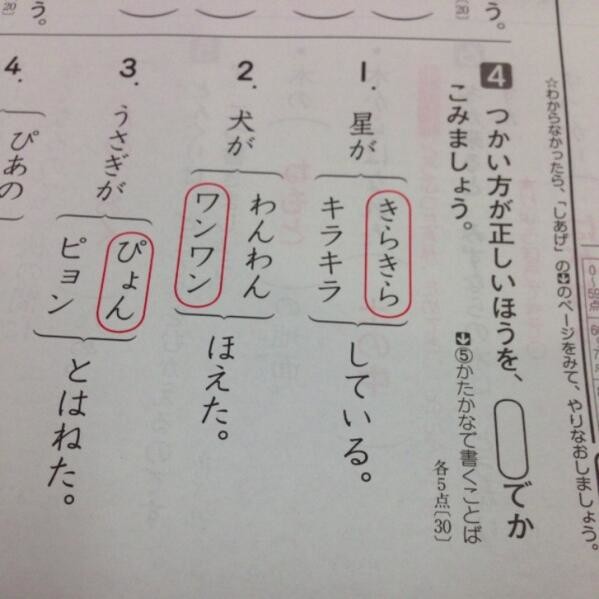 ☆わからなかったら、「しあげ」の⬇のページをみて、やりなおしましょう。
4 つかい方が正しいほうを、◯でか
こみましょう。
⬇⑤かたかなで書くことば
各5点〔30〕
1. 星が
きらきら
キラキラ
している。
2. 犬が
わんわん
ワンワン
ほえた。
3. うさぎが
ぴょん
ピョン
とはねた。
4. ぴあの
う。
う。
〔20〕